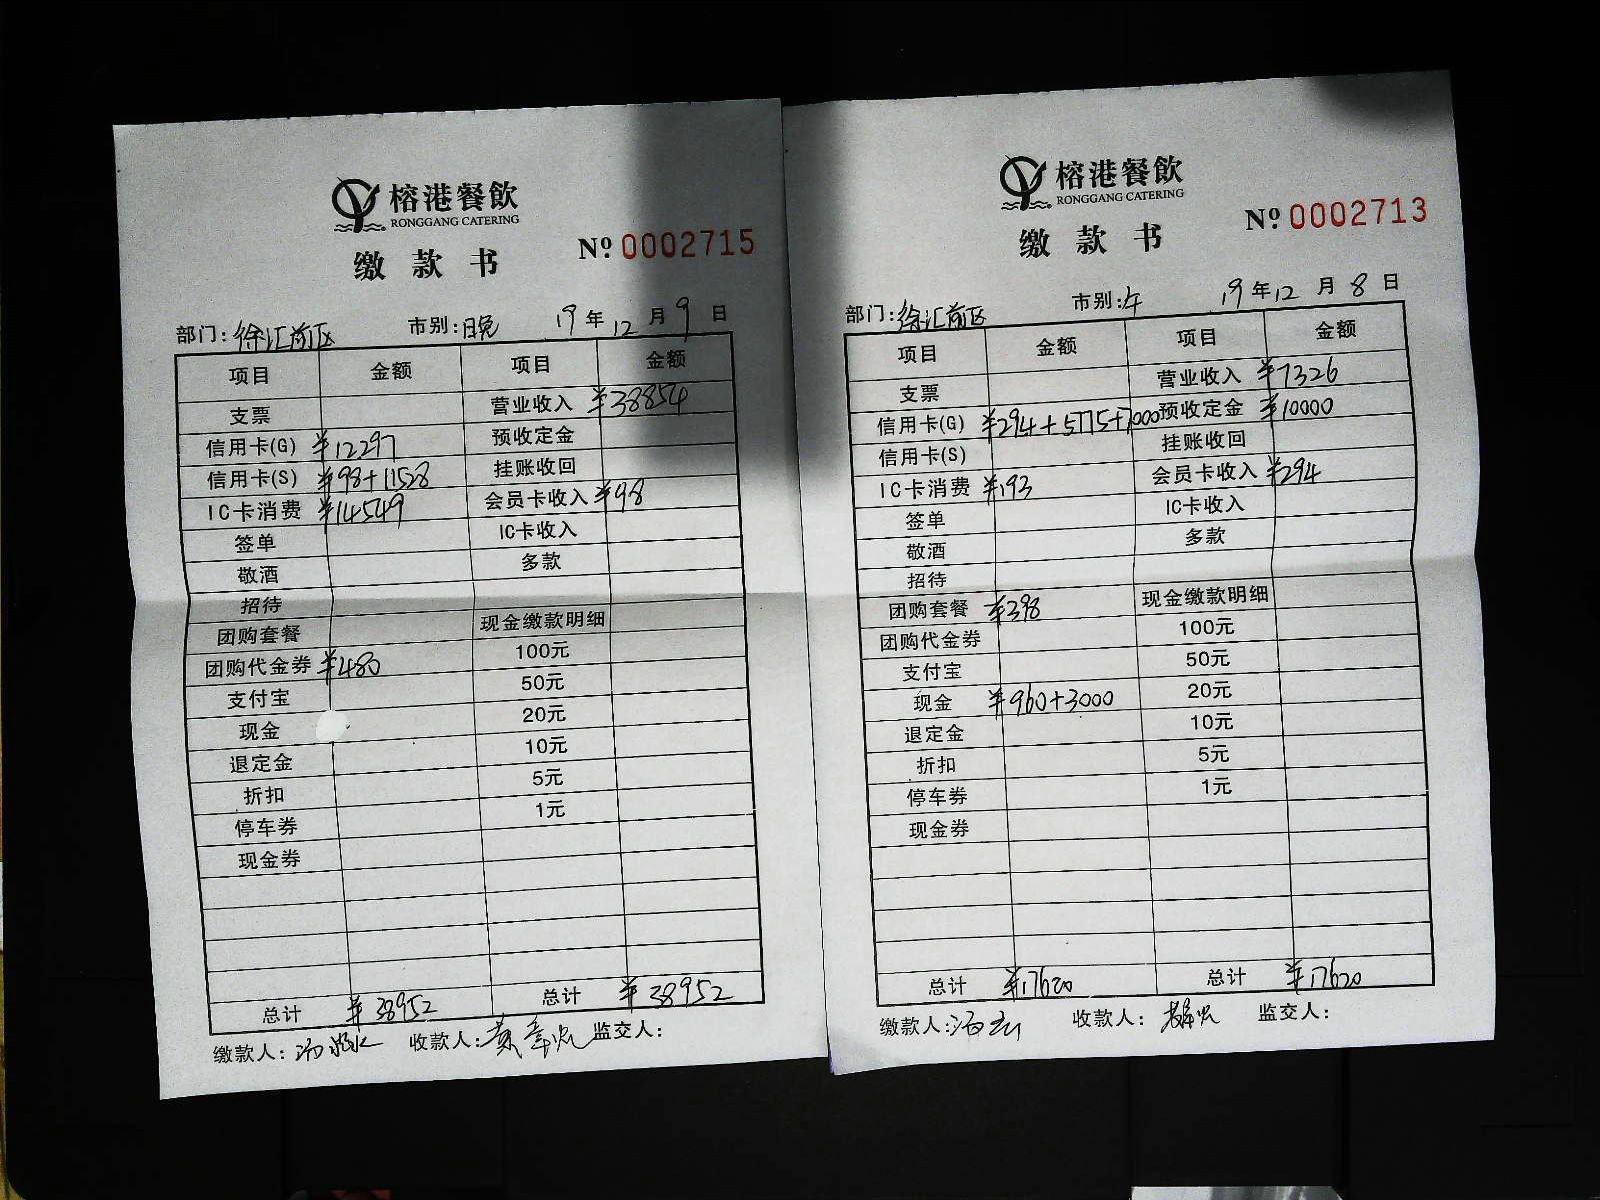 榕港餐飲
RONGGANG CATERING
缴款书 Nº 0002715
部门: 徐汇前区 市别: 晚 19年12月9日
项目 金额 项目 金额
支票 营业收入 ¥38854
信用卡(G) ¥12297 预收定金
信用卡(S) ¥98+11528 挂账收回
IC卡消费 ¥14549 会员卡收入 ¥98
签单 IC卡收入
敬酒 多款
招待
团购套餐 现金缴款明细
团购代金券 ¥480 100元
支付宝 50元
现金 20元
退定金 10元
折扣 5元
停车券 1元
现金券
总计 ¥38952 总计 ¥38952
缴款人: 收款人: 监交人:
榕港餐飲
RONGGANG CATERING
缴款书 Nº 0002713
部门: 徐汇前区 市别: 午 19年12月8日
项目 金额 项目 金额
支票 营业收入 ¥7326
信用卡(G) ¥294+5775+7000 预收定金 ¥10000
信用卡(S) 挂账收回
IC卡消费 ¥193 会员卡收入 ¥294
签单 IC卡收入
敬酒 多款
招待
团购套餐 ¥398 现金缴款明细
团购代金券 100元
支付宝 50元
现金 ¥960+3000 20元
退定金 10元
折扣 5元
停车券 1元
现金券
总计 ¥17620 总计 ¥17620
缴款人: 收款人: 监交人: